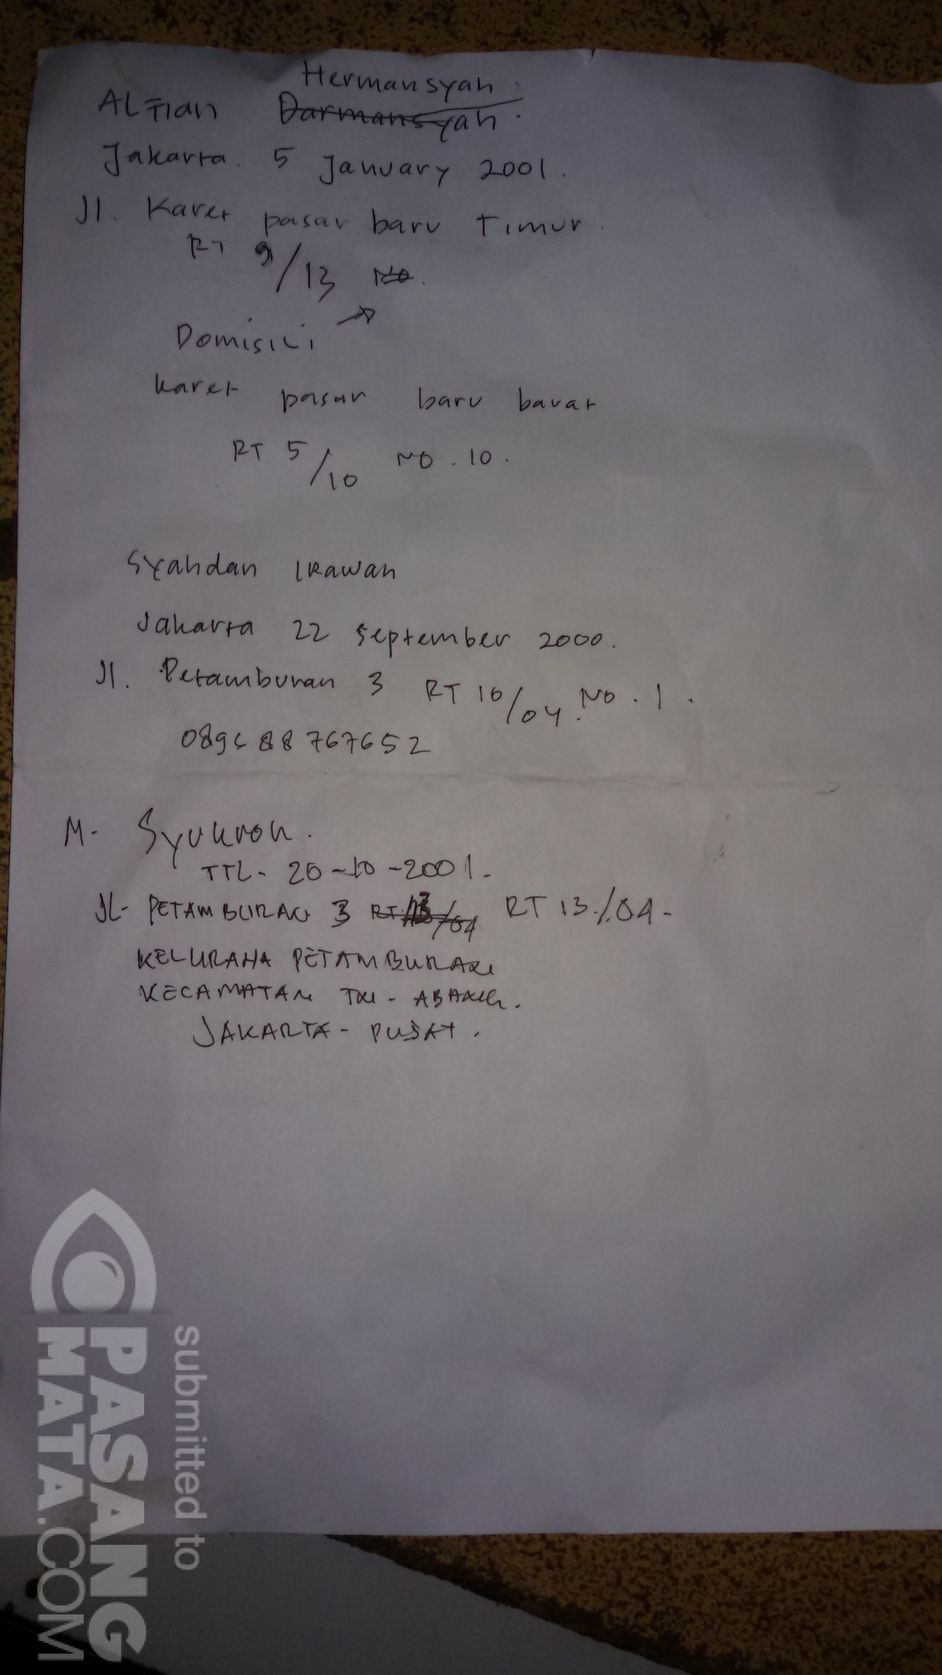 Hermansyah.
ALFian Darmansyah.
Jakarta. 5 January 2001.
Jl. Karet pasar baru Timur.
RT 9/13 NO.
Domisili
karet pasar baru barat
RT 5/10 NO. 10.
Syahdan IRawan
Jakarta 22 September 2000.
Jl. Petamburan 3 RT 10/04. NO. 1.
089688767652
M. Syukron.
TTL. 20-10-2001.
JL. PETAMBURAN 3 RT 13/04 RT 13./04.
KELURAHA PETAMBURAN
KECAMATAN TN - ABANG.
JAKARTA - PUSAT.
submitted to
PASANG
MATA.COM